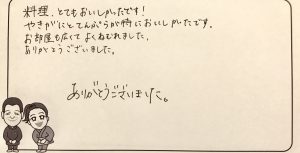 料理、とてもおいしかったです！
やきがにとてんぷらが特においしかったです。
お部屋も広くてよくねむれました。
ありがとうございました。
ありがとうございました。